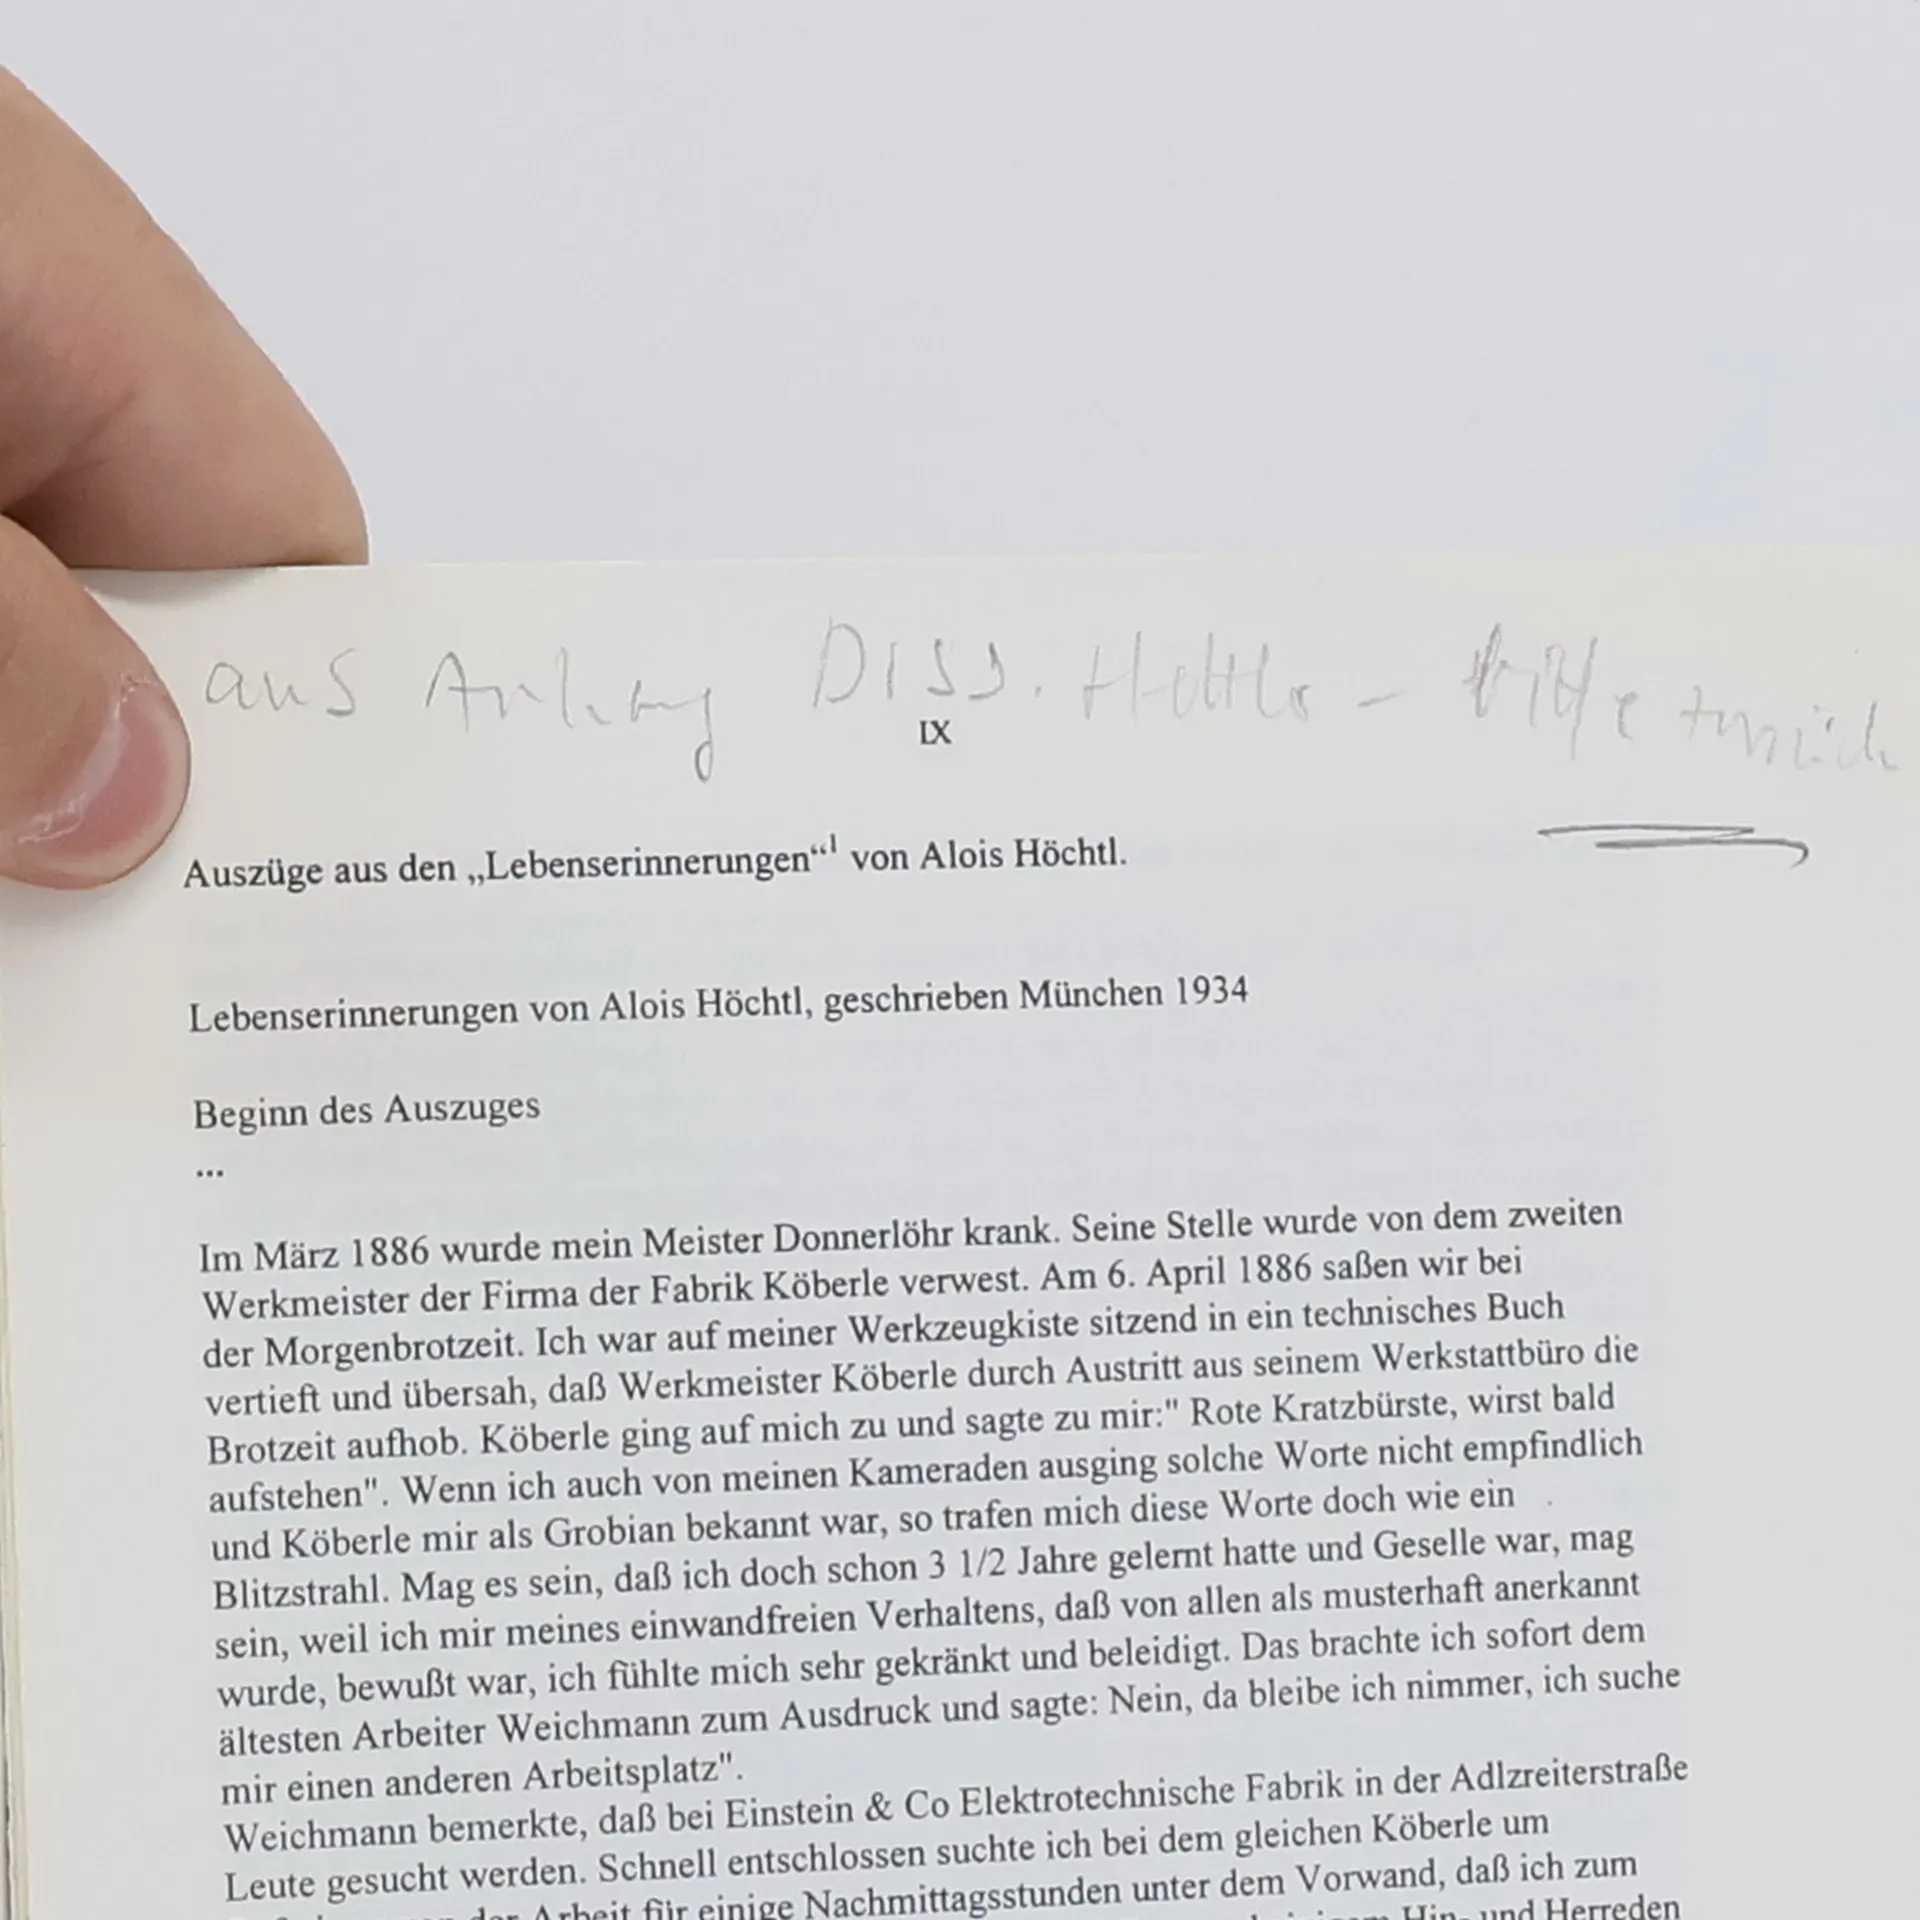 aus Anhang DISS. Hettler - bitte zurück
IX
Auszüge aus den „Lebenserinnerungen“1 von Alois Höchtl.
Lebenserinnerungen von Alois Höchtl, geschrieben München 1934
Beginn des Auszuges
...
Im März 1886 wurde mein Meister Donnerlöhr krank. Seine Stelle wurde von dem zweiten
Werkmeister der Firma der Fabrik Köberle verwest. Am 6. April 1886 saßen wir bei
der Morgenbrotzeit. Ich war auf meiner Werkzeugkiste sitzend in ein technisches Buch
vertieft und übersah, daß Werkmeister Köberle durch Austritt aus seinem Werkstattbüro die
Brotzeit aufhob. Köberle ging auf mich zu und sagte zu mir:" Rote Kratzbürste, wirst bald
aufstehen". Wenn ich auch von meinen Kameraden ausging solche Worte nicht empfindlich
und Köberle mir als Grobian bekannt war, so trafen mich diese Worte doch wie ein
Blitzstrahl. Mag es sein, daß ich doch schon 3 1/2 Jahre gelernt hatte und Geselle war, mag
sein, weil ich mir meines einwandfreien Verhaltens, daß von allen als musterhaft anerkannt
wurde, bewußt war, ich fühlte mich sehr gekränkt und beleidigt. Das brachte ich sofort dem
ältesten Arbeiter Weichmann zum Ausdruck und sagte: Nein, da bleibe ich nimmer, ich suche
mir einen anderen Arbeitsplatz".
Weichmann bemerkte, daß bei Einstein & Co Elektrotechnische Fabrik in der Adlzreiterstraße
Leute gesucht werden. Schnell entschlossen suchte ich bei dem gleichen Köberle um
der Arbeit für einige Nachmittagsstunden unter dem Vorwand, daß ich zum
Hin- und Herreden